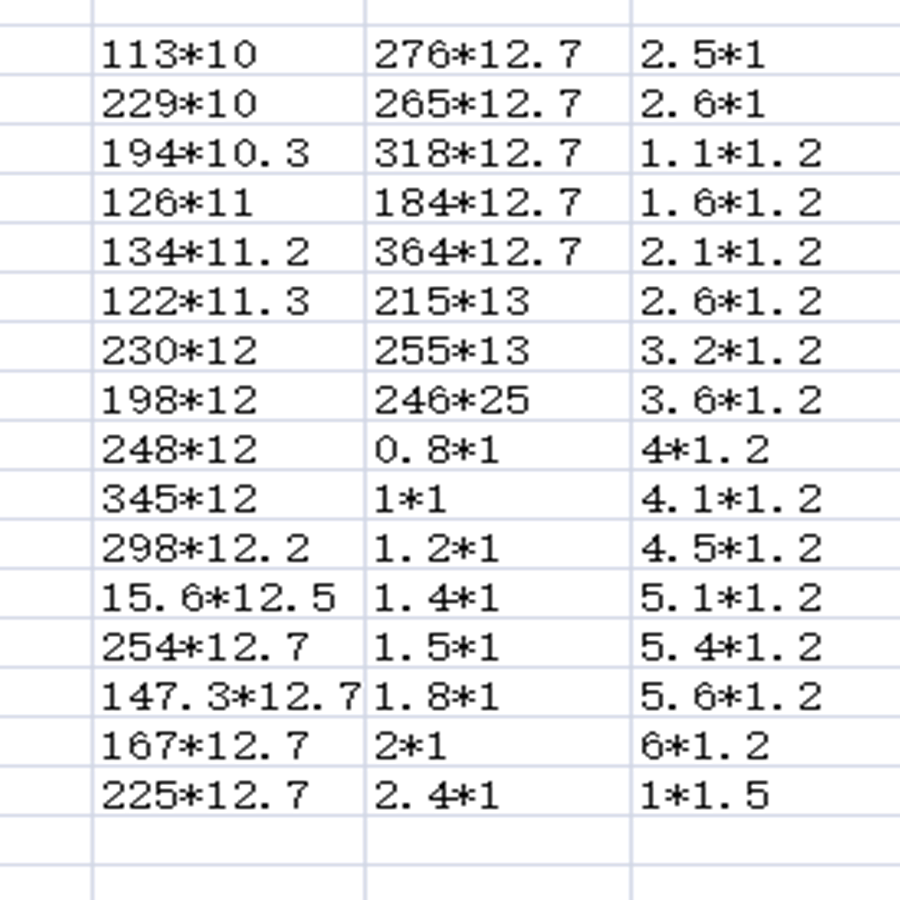 113*10 276*12.7 2.5*1
229*10 265*12.7 2.6*1
194*10.3 318*12.7 1.1*1.2
126*11 184*12.7 1.6*1.2
134*11.2 364*12.7 2.1*1.2
122*11.3 215*13 2.6*1.2
230*12 255*13 3.2*1.2
198*12 246*25 3.6*1.2
248*12 0.8*1 4*1.2
345*12 1*1 4.1*1.2
298*12.2 1.2*1 4.5*1.2
15.6*12.5 1.4*1 5.1*1.2
254*12.7 1.5*1 5.4*1.2
147.3*12.7 1.8*1 5.6*1.2
167*12.7 2*1 6*1.2
225*12.7 2.4*1 1*1.5